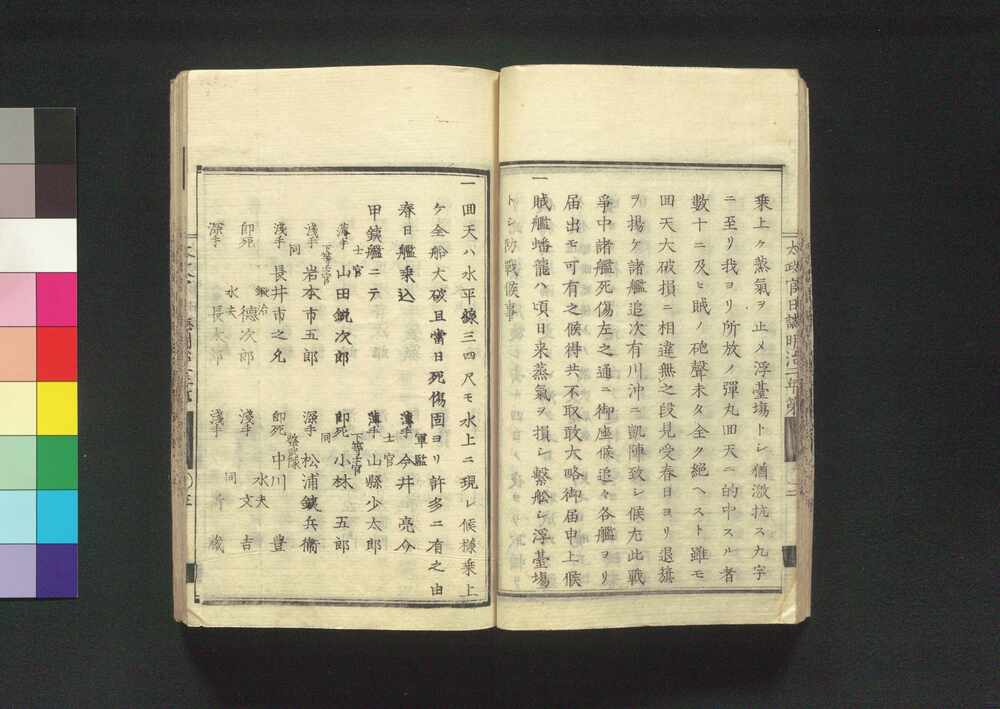 乗上ケ蒸氣ヲ止メ浮臺場トシ循激抗ス九字
ニ至リ我ヨリ所放ノ彈丸回天ニ的中スル者
數十ニ及ヒ賊ノ砲聲未タ全ク絶ヘスト雖モ
回天大破損ニ相違無之段見受春日ヨリ退旗
ヲ揚ケ諸艦追次有川沖ニ凱陣致シ候尤此戰
爭中諸艦死傷左之通ニ御座候追々各艦ヨリ
届出モ可有之候得共不取敢大略御届申上候
一賊艦蟠龍ハ頃日来蒸氣ヲ損シ繋舩シ浮臺場
トシ防戰候事
太政官日誌明治二年第
一回天ハ水平線三四尺モ水上ニ現レ候様乗上
ケ全船大破且當日死傷固ヨリ許多ニ有之由
春日艦乗込
軍監
薄手 今井 亮介
甲鐵艦ニテ
士官
薄手 山縣少太郎
士官
薄手 山田鋭次郎
下等士官
即死 小林 五郎
下等士官
淺手 岩本市五郎
同
深手 松浦鐵兵衛
同
淺手 長井市之允
即死 中川 豊
鍛冶
即死 德次郎
水夫
淺手 文吉
水夫
深手 長太郎
同
淺手